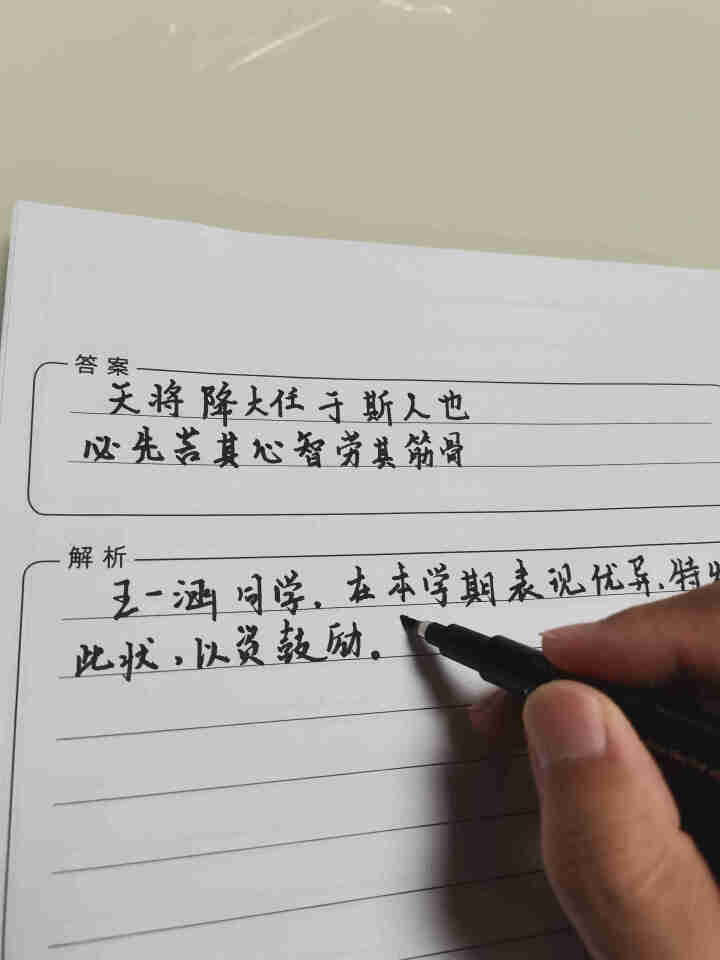 答案
天将降大任于斯人也
必先苦其心智劳其筋骨
解析
王一涵同学，在本学期表现优异，特
此状，以资鼓励。